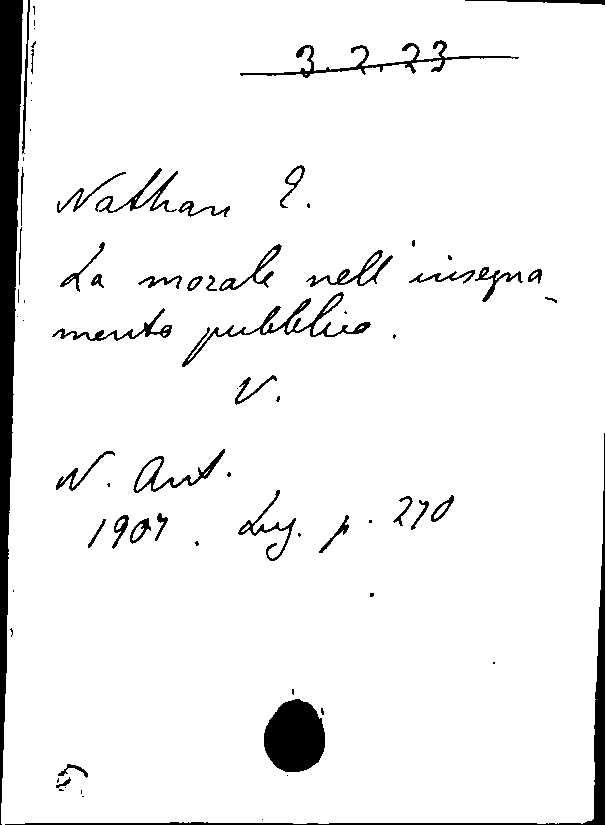 3.2.23
Nathan E.
La morale nell'insegna-
mento pubblico.
V.
N. Ant.
1907. Lug. p. 270
5